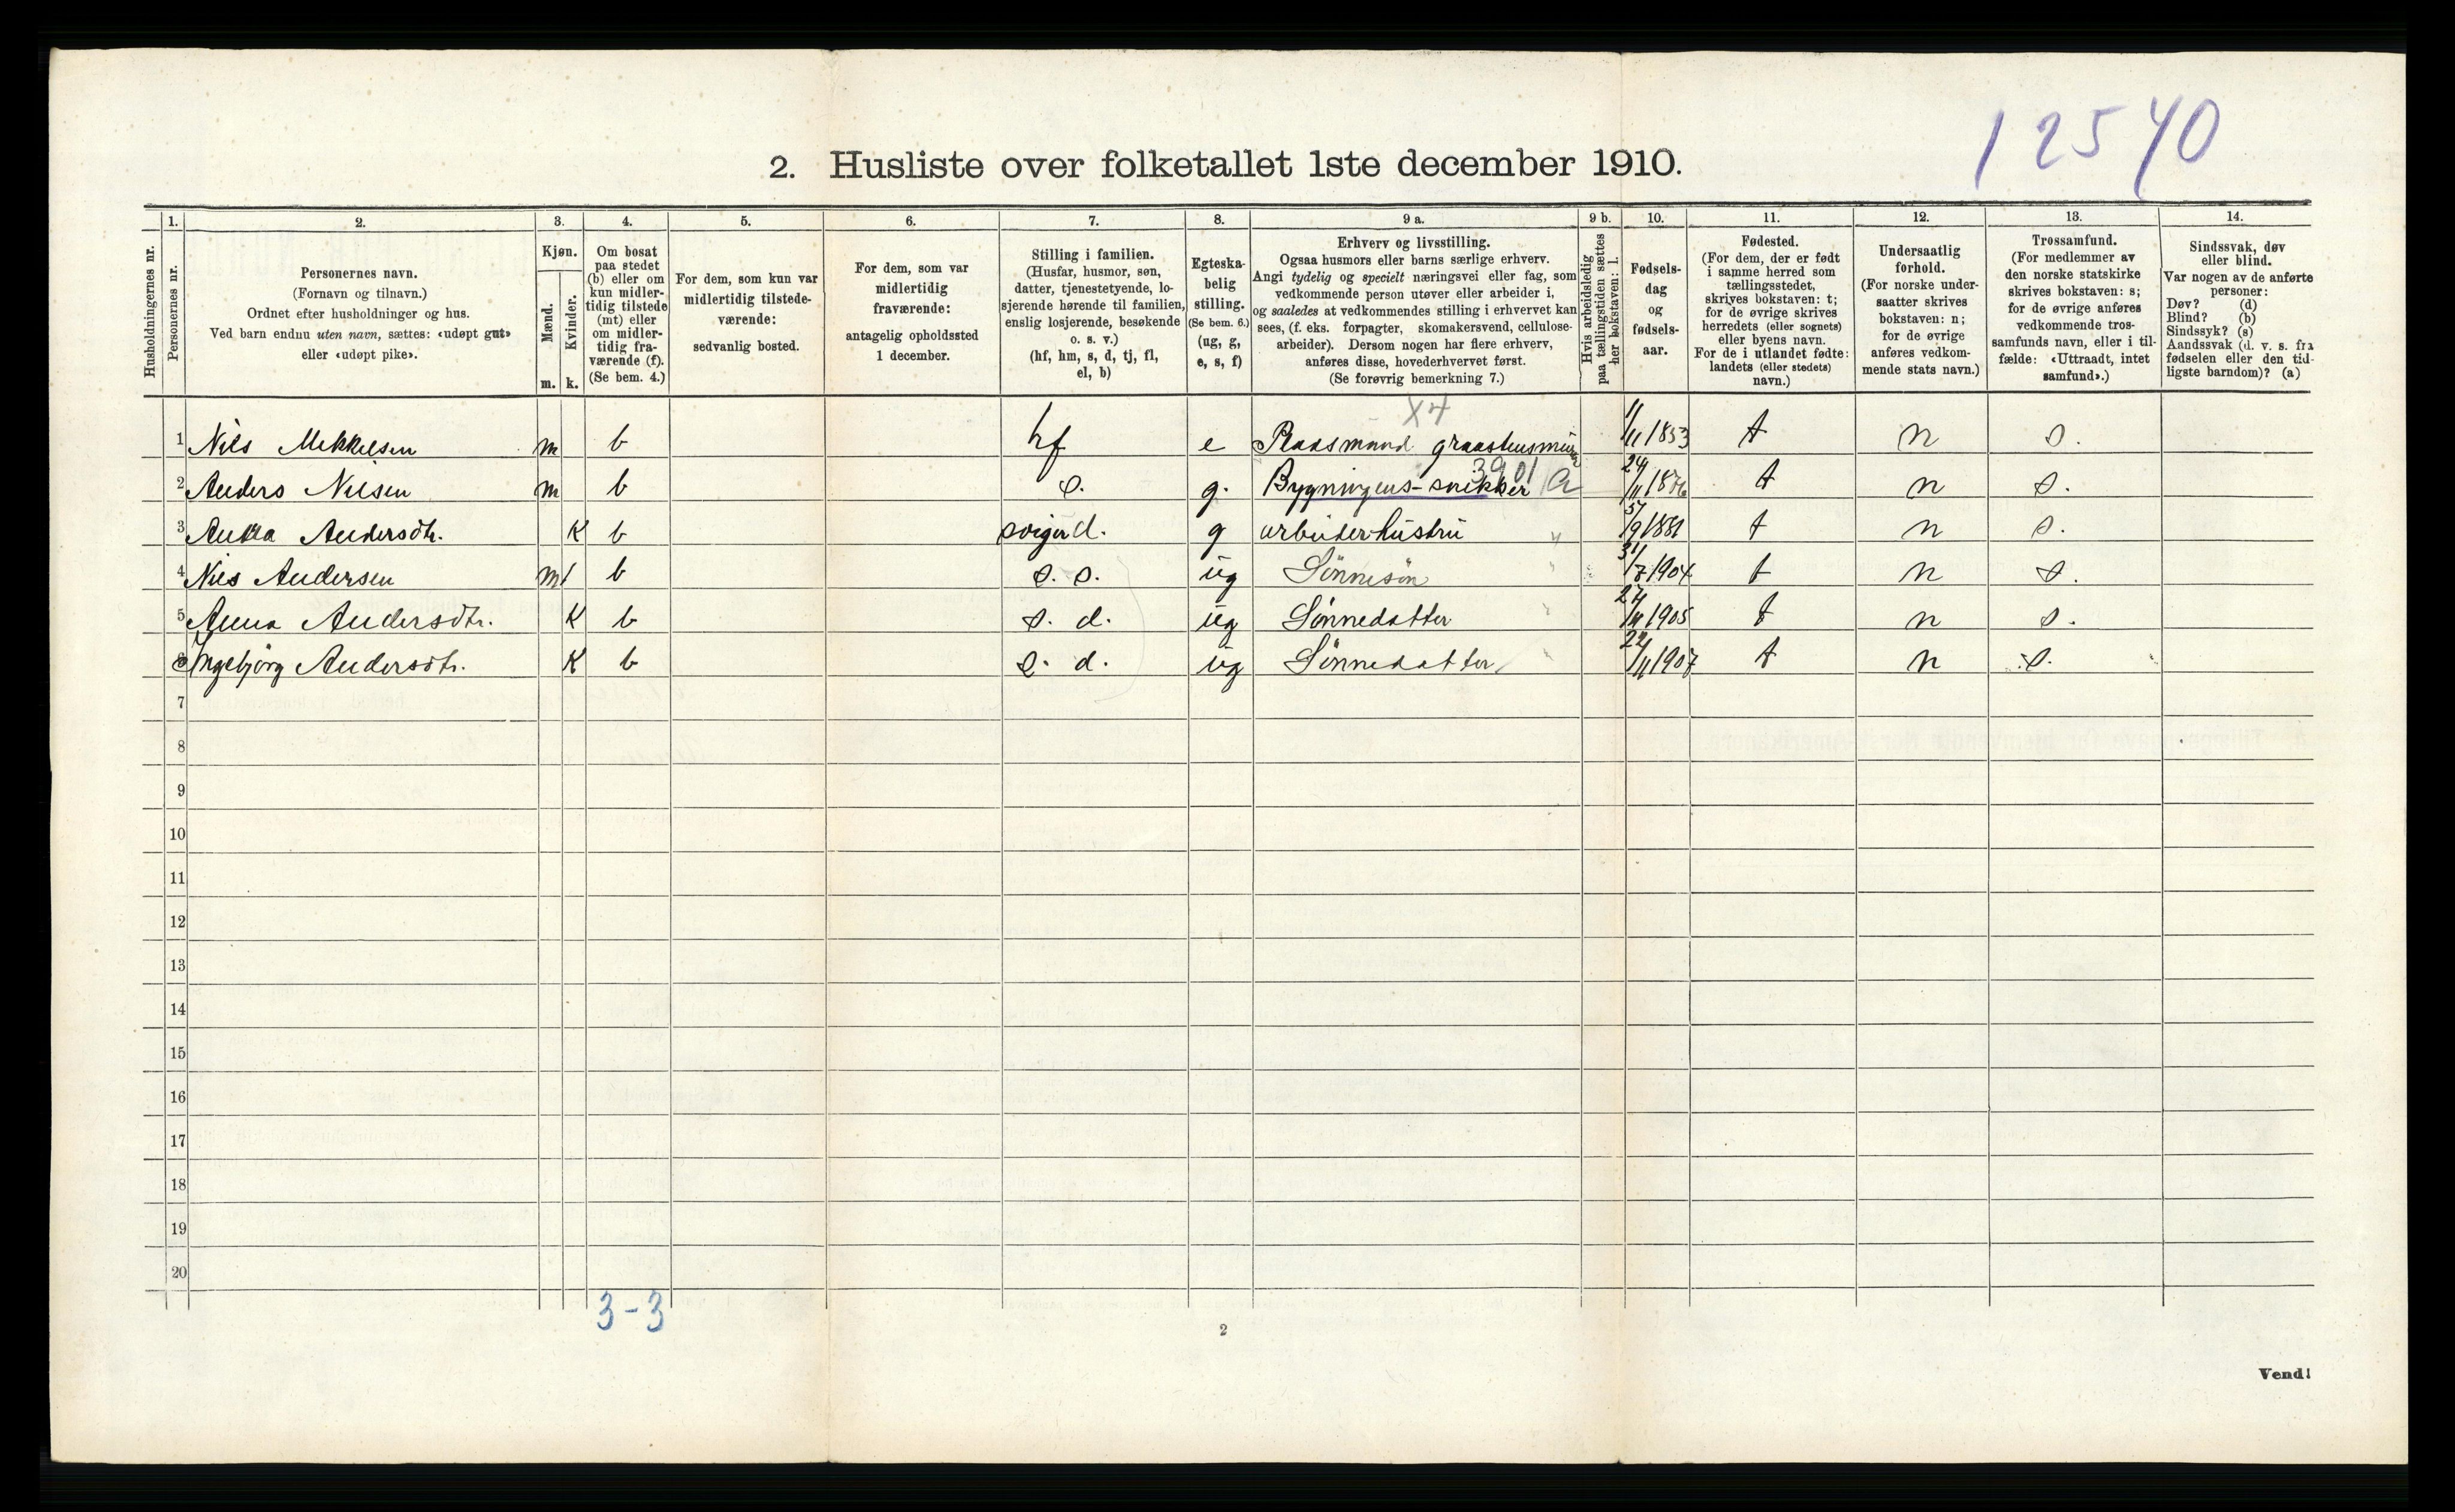 12540
2. Husliste over folketallet 1ste december 1910.
Husholdningernes nr.
1.
Personernes nr.
2.
Personernes navn.
(Fornavn og tilnavn.)
Ordnet efter husholdninger og hus.
Ved barn endnu uten navn, sættes: «udøpt gut»
eller «udøpt pike».
3.
Kjøn.
Mænd.
Kvinder.
m. k.
4.
Om bosat
paa stedet
(b) eller om
kun midler-
tidig tilstede
(mt) eller
om midler-
tidig fra-
værende (f).
(Se bem. 4.)
5.
For dem, som kun var
midlertidig tilstede-
værende:
sedvanlig bosted.
6.
For dem, som var
midlertidig
fraværende:
antagelig opholdssted
1 december.
7.
Stilling i familien.
(Husfar, husmor, søn,
datter, tjenestetyende, lo-
sjerende hørende til familien,
enslig losjerende, besøkende
o. s. v.)
(hf, hm, s, d, tj, fl,
el, b)
8.
Egteska-
belig
stilling.
(Se bem. 6.)
(ug, g,
e, s, f)
9 a.
Erhverv og livsstilling.
Ogsaa husmors eller barns særlige erhverv.
Angi tydelig og specielt næringsvei eller fag, som
vedkommende person utøver eller arbeider i,
og saaledes at vedkommendes stilling i erhvervet kan
sees, (f. eks. forpagter, skomakersvend, cellulose-
arbeider). Dersom nogen har flere erhverv,
anføres disse, hovederhvervet først.
(Se forøvrig bemerkning 7.)
9 b.
Hvis arbeidsledig
paa tællingstiden sættes
her bokstaven: l.
10.
Fødsels-
dag
og
fødsels-
aar.
11.
Fødested.
(For dem, der er født
i samme herred som
tællingsstedet,
skrives bokstaven: t;
for de øvrige skrives
herredets (eller sognets)
eller byens navn.
For de i utlandet fødte:
landets (eller stedets)
navn.)
12.
Undersaatlig
forhold.
(For norske under-
saatter skrives
bokstaven: n;
for de øvrige
anføres vedkom-
mende stats navn.)
13.
Trossamfund.
(For medlemmer av
den norske statskirke
skrives bokstaven: s;
for de øvrige anføres
vedkommende tros-
samfunds navn, eller i til-
fælde: «Uttraadt, intet
samfund».)
14.
Sindssvak, døv
eller blind.
Var nogen av de anførte
personer:
Døv? (d)
Blind? (b)
Sindssyk? (s)
Aandssvak (d. v. s. fra
fødselen eller den tid-
ligste barndom)? (a)
X4
1 Nils Mekkelsen m b hf e Plassmand graastensmurer 1/11 1853 t n s.
3901 a
2 Anders Nilsen m b s. g. Bygningens-snikker 24/11 1876 t n s.
3 Anna Andersdtr. K b svigerd. g arbeiderhustru " 5/9 1881 t n s.
4 Nils Andersen m b s. s. ug Sønnesøn " 31/7 1904 t n s.
5 Anna Andersdtr. K b s. d. ug Sønnedatter " 27/11 1905 t n s.
6 Ingebjørg Andersdtr. K b s. d. ug Sønnedatter " 22/11 1907 t n s.
7
8
9
10
11
12
13
14
15
16
17
18
19
20
3-3
2
Vend!